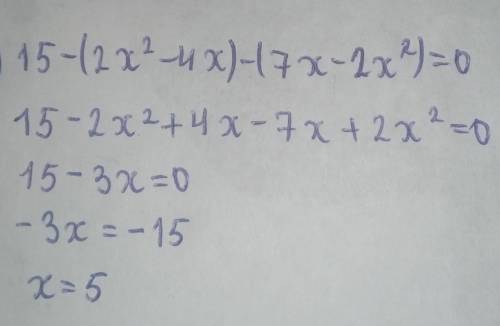 15-(2x²-4x)-(7x-2x²)=0
15-2x²+4x-7x+2x²=0
15-3x=0
-3x=-15
x=5